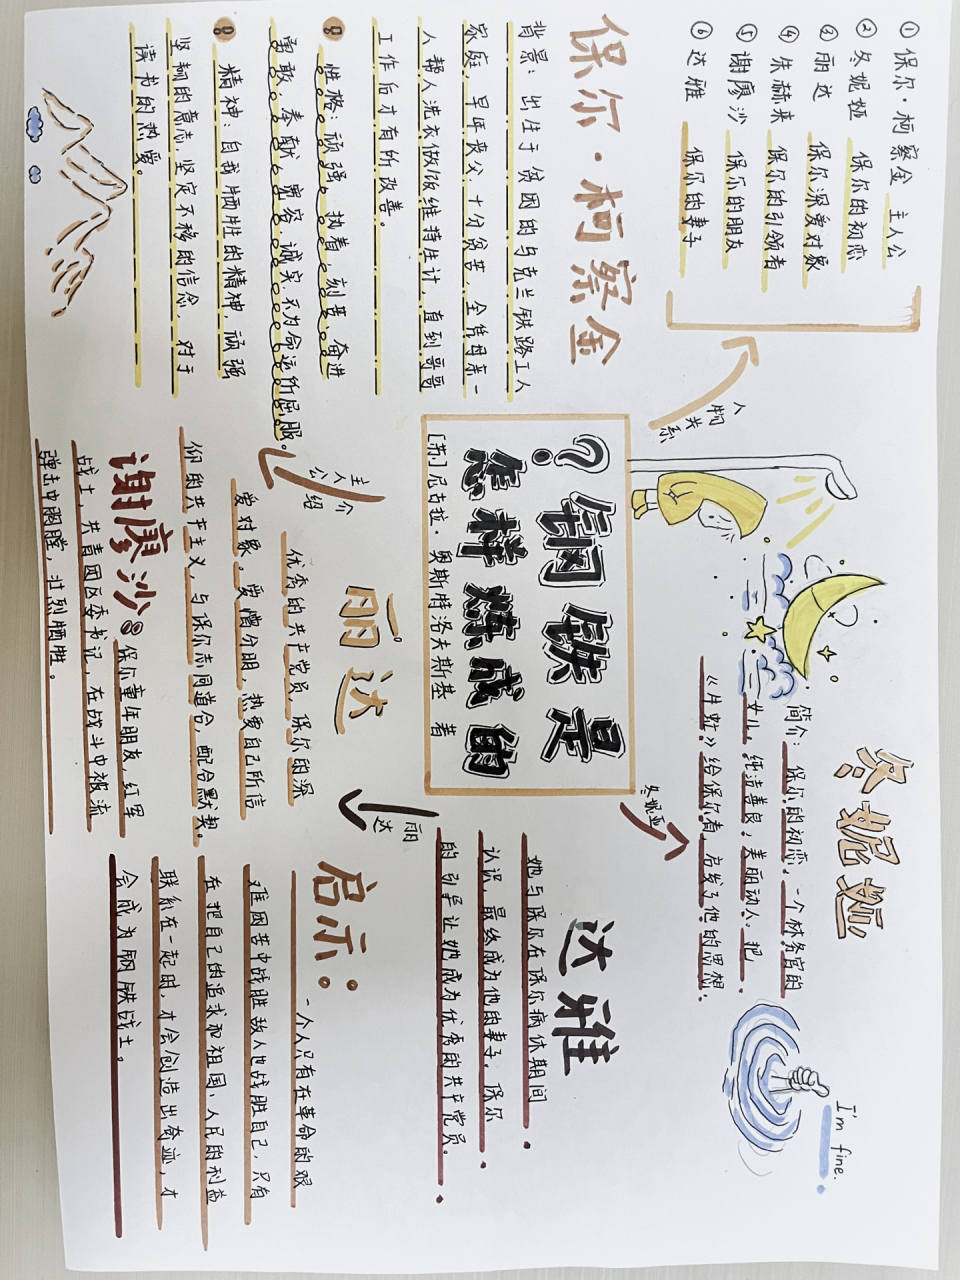 ① 保尔·柯察金 主人公
② 冬妮娅 保尔的初恋
③ 丽达 保尔深爱对象
④ 朱赫来 保尔的引领者
⑤ 谢廖沙 保尔的朋友
⑥ 达雅 保尔的妻子
人物关系
保尔·柯察金
背景：出生于贫困的乌克兰铁路工人
家庭，早年丧父，十分贫苦，全凭母亲一
人帮人洗衣做饭维持生计，直到哥哥
工作后才有所改善。
性格：顽强、执着、刻苦、奋进
勇敢、奉献、宽容、诚实、不为命运所屈服。
精神：自我牺牲的精神，顽强
坚韧的意志，坚定不移的信念，对于
读书的热爱。
钢铁是
怎样炼成的？
[苏]尼古拉·奥斯特洛夫斯基 著
主人公介绍
冬妮娅
冬妮娅
简介：保尔的初恋，一个林务官的
女儿，纯洁善良，美丽动人。把
《牛虻》给保尔看，启发了他的思想。
I'm fine.
丽达
优秀的共产党员，保尔的深
爱对象。爱憎分明，热爱自己所信
仰的共产主义，与保尔志同道合，配合默契。
谢廖沙：保尔童年朋友，红军
战士，共青团区委书记，在战斗中被流
弹击中胸膛，壮烈牺牲。
丽达
达雅
她与保尔在保尔病休期间
认识，最终成为他的妻子，保尔
的引导让她成为优秀的共产党员。
启示：
一个人只有在革命的艰
难困苦中战胜敌人也战胜自己，只有
在把自己的追求和祖国、人民的利益
联系在一起时，才会创造出奇迹，才
会成为钢铁战士。